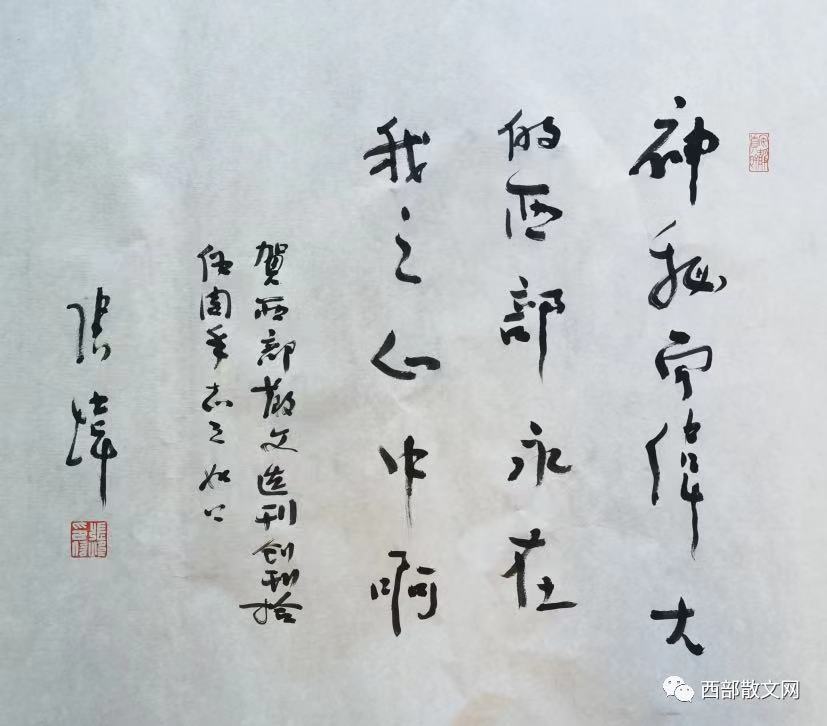 神秘而偉大
的西部永在
我之心中啊
賀西部散文选刊创刊拾
伍周年志之如上
张煒
西部散文网